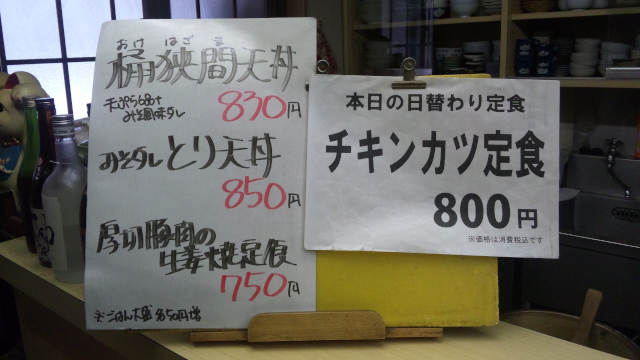 おけ はざま
桶狭間天丼
天ぷら6品+
みそ風味タレ
830円
みそダレとり天丼
850円
厚切豚肉の
生姜焼定食
750円
※ごはん大盛
50円増
本日の日替わり定食
チキンカツ定食
800円
※価格は消費税込です